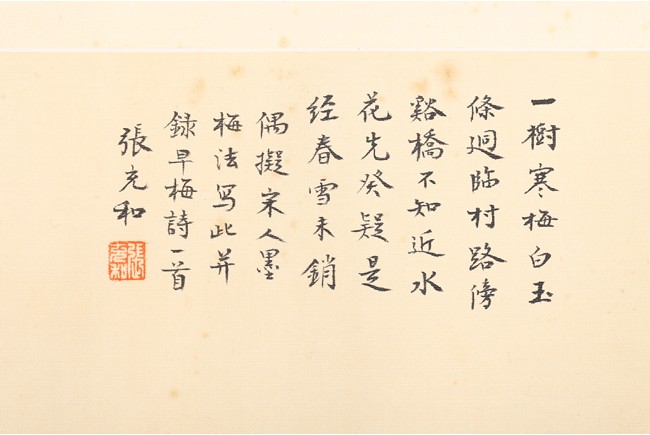 一樹寒梅白玉
條迥臨村路傍
谿橋不知近水
花先發疑是
经春雪未銷
偶擬宋人墨
梅法写此并
録早梅詩一首
張充和
張充和